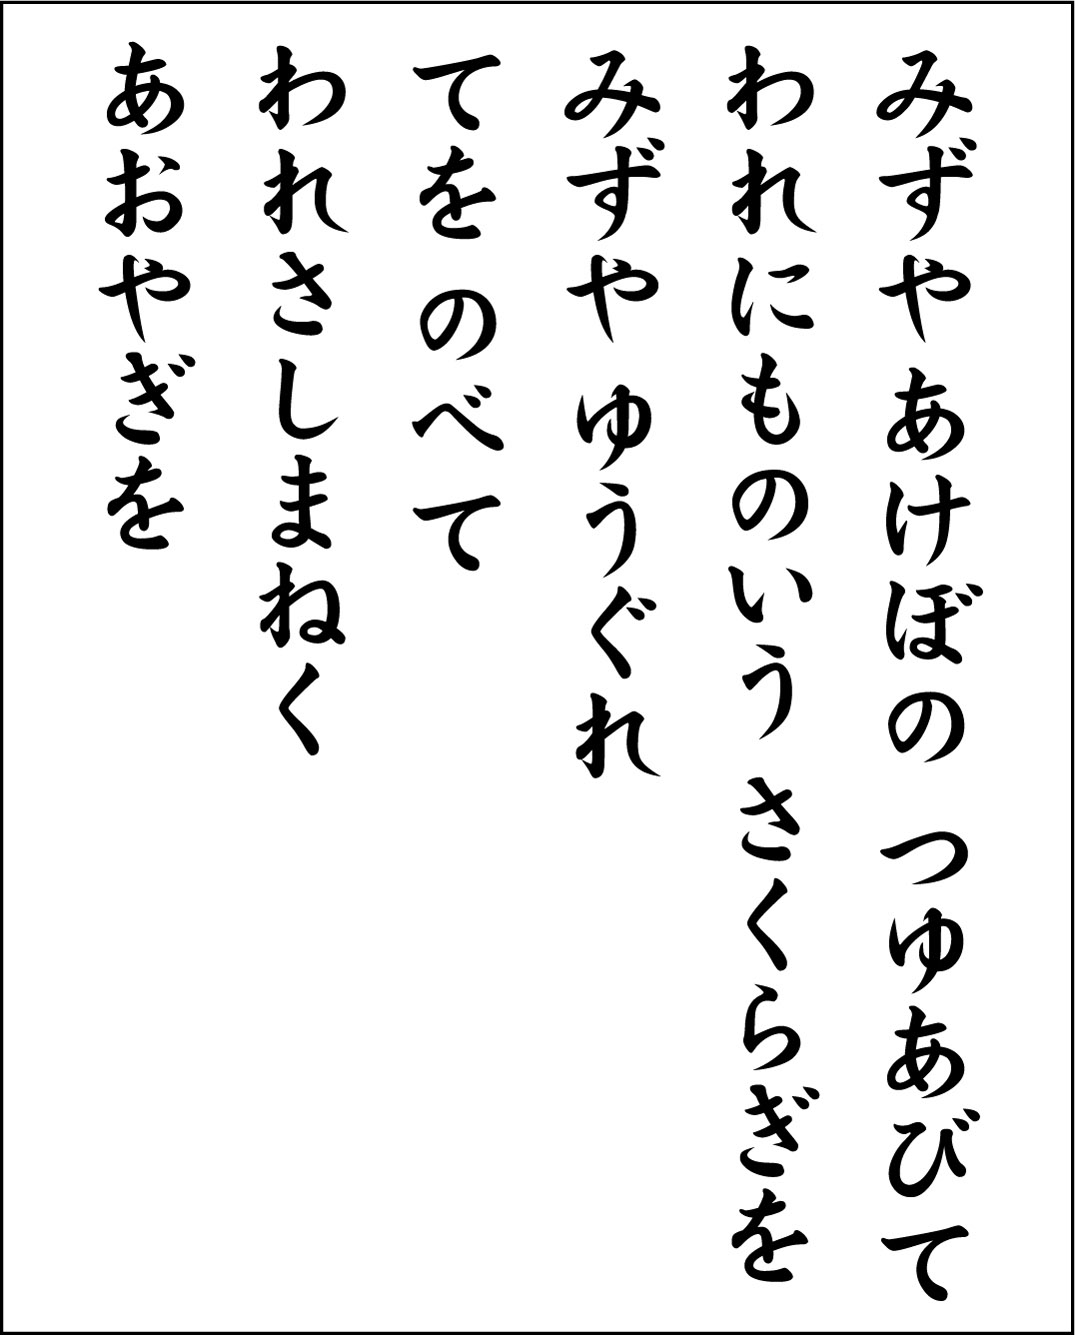 みずや あけぼの つゆあびて
われにものいう さくらぎを
みずや ゆうぐれ
てを のべて
われさしまねく
あおやぎを